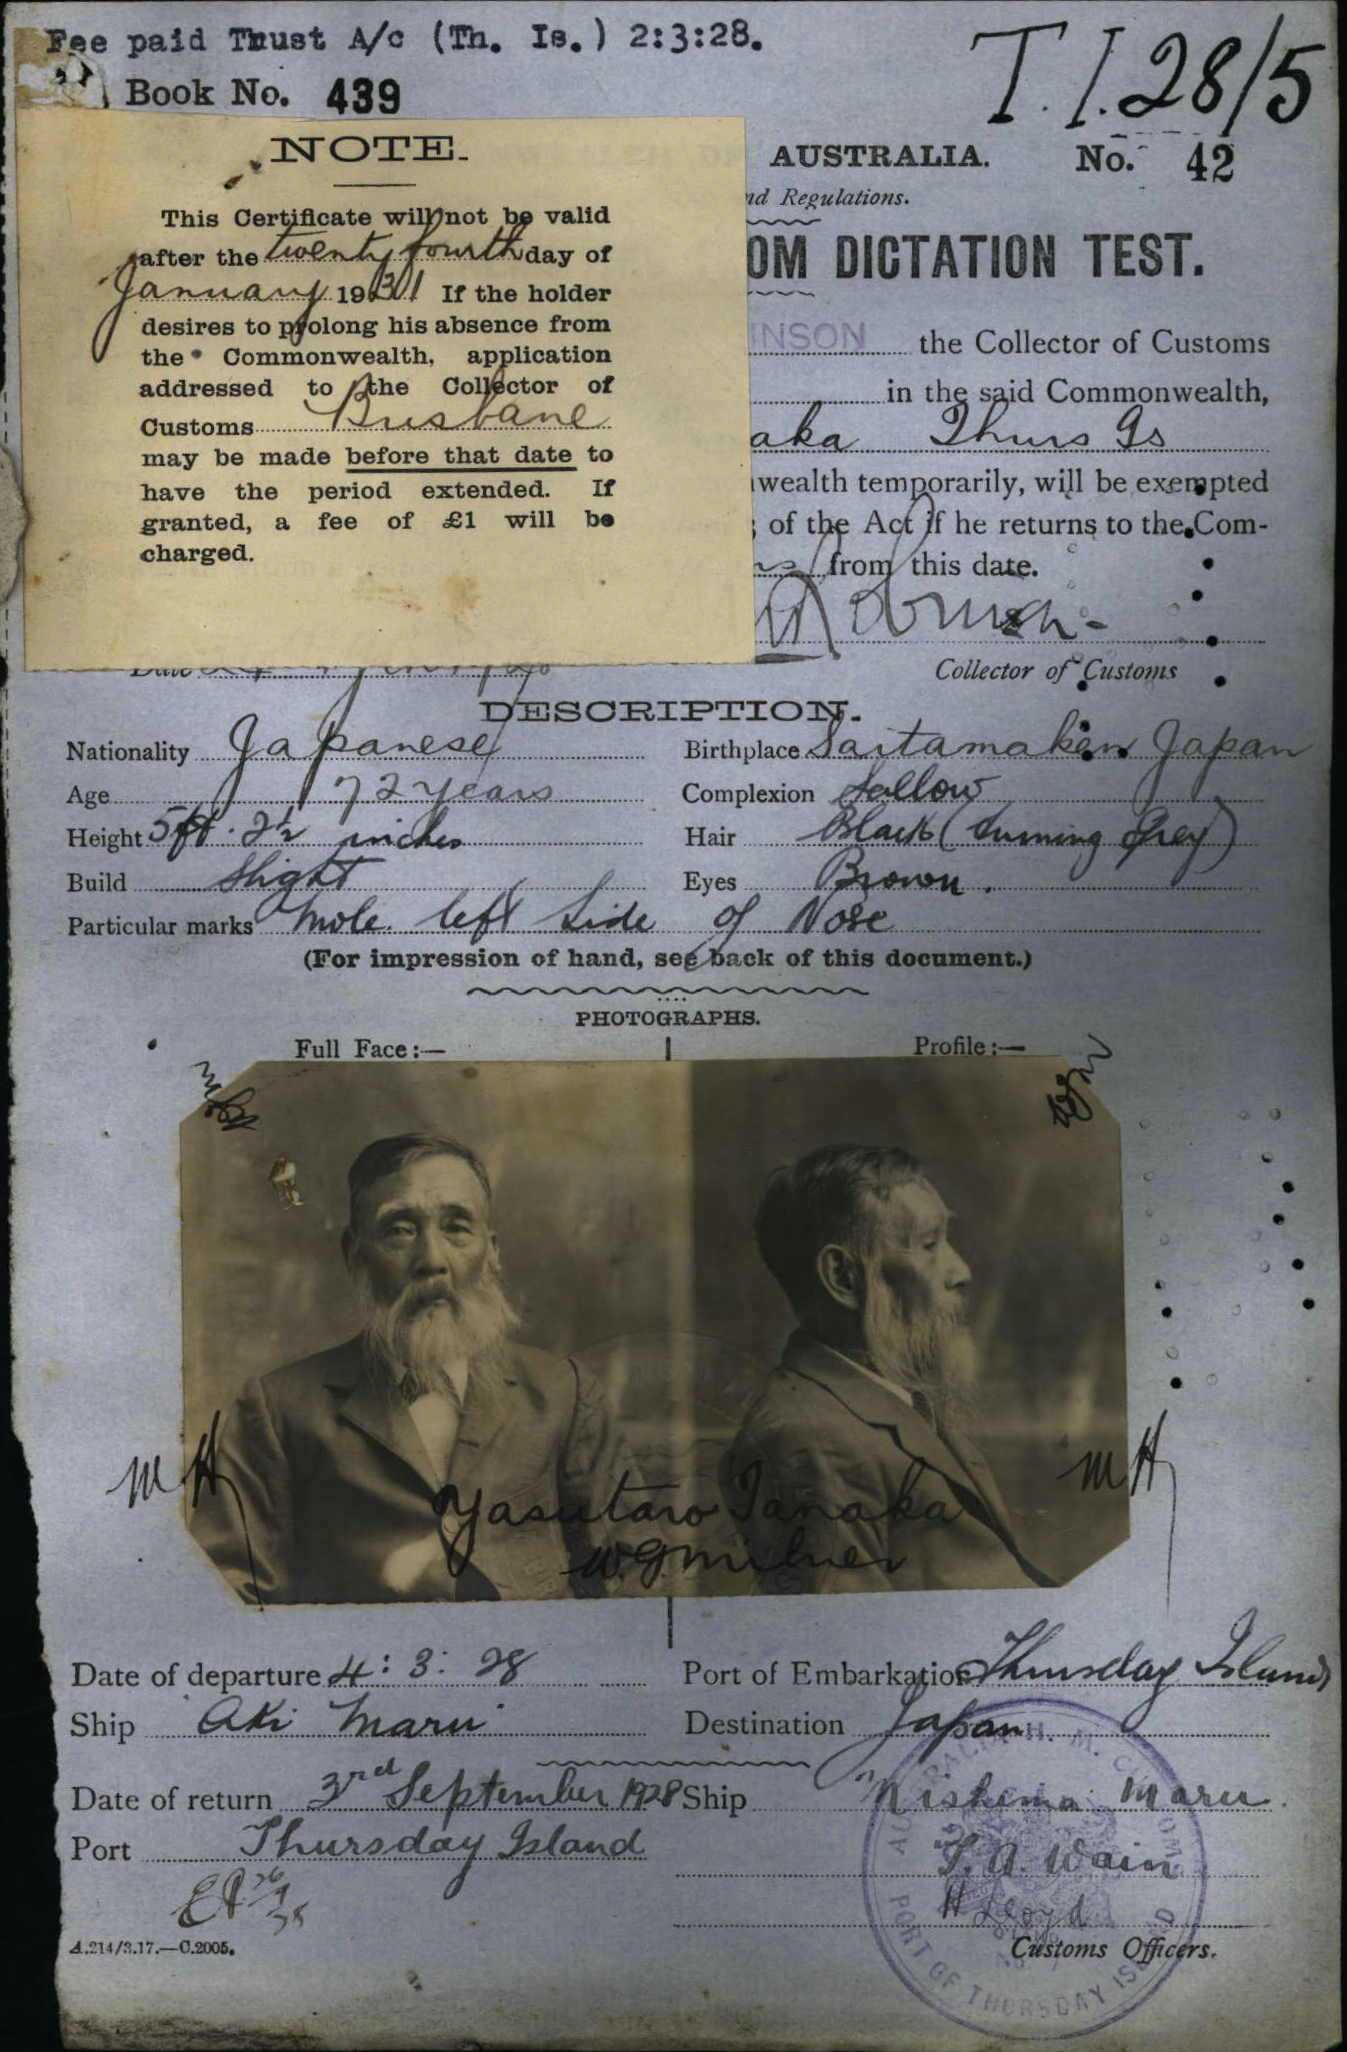 Fee paid Trust A/c (Th. Is.) 2:3:28.
T.I.28/5
Book No. 439
NOTE.
This Certificate will not be valid
after the twenty fourth day of
January 1931 If the holder
desires to prolong his absence from
the Commonwealth, application
addressed to the Collector of
Customs Brisbane
may be made before that date to
have the period extended. If
granted, a fee of £1 will be
charged.
AUSTRALIA. No. 42
nd Regulations.
OM DICTATION TEST.
INSON the Collector of Customs
in the said Commonwealth,
aka Thurs Is
wealth temporarily, will be exempted
of the Act if he returns to the Com-
rs from this date.
Date
Collector of Customs
DESCRIPTION.
Nationality Japanese Birthplace Saitamaken Japan
Age 72 years Complexion Sallow
Height 5ft. 2½ inches Hair Black (turning Grey)
Build Slight Eyes Brown.
Particular marks Mole left Side of Nose
(For impression of hand, see back of this document.)
PHOTOGRAPHS.
Full Face:— Profile:—
MH MH
Yasutaro Tanaka
W.G. Milner
Date of departure 4:3:28 Port of Embarkation Thursday Island
Ship Aki Maru Destination Japan
Date of return 3rd September 1928 Ship "Mishima Maru
Port Thursday Island
T. A. Wain
H Lloyd
Customs Officers.
A.214/3.17.—C.2005.
AUSTRALIA H. M. CUSTOMS
PORT OF THURSDAY ISLAND